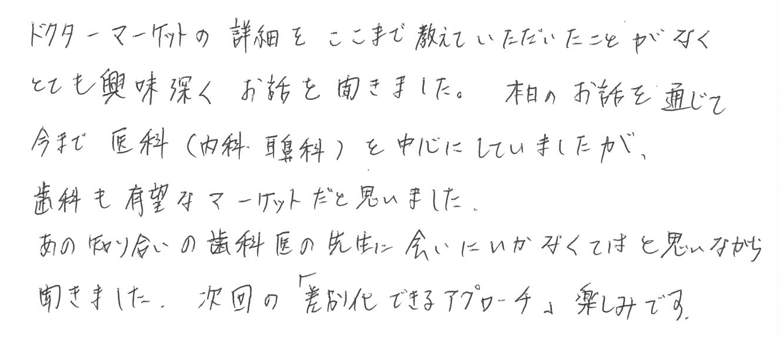 ドクターマーケットの詳細をここまで教えていただいたことがなく
とても興味深くお話を聞きました。本日のお話を通じて
今まで医科（内科・耳鼻科）を中心にしていましたが、
歯科も有望なマーケットだと思いました.
あの知り合いの歯科医の先生に会いにいかなくてはと思いながら
聞きました. 次回の「差別化できるアプローチ」楽しみです.